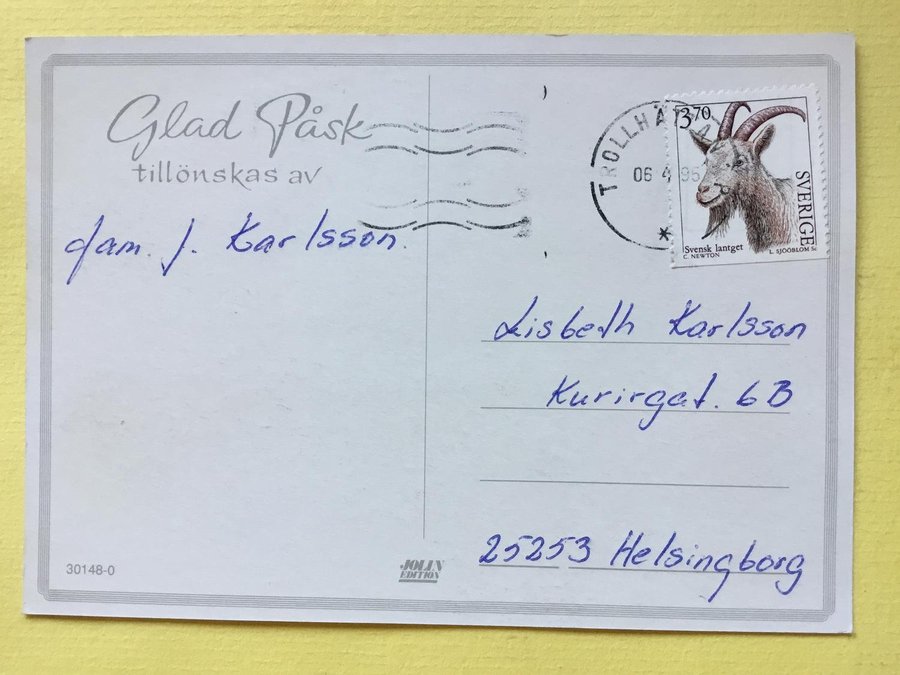 Glad Påsk
tillönskas av
fam. J. Karlsson.
TROLLHÄ
06 4 95
3.70
SVERIGE
Svensk lantget
C. NEWTON
L. SJÖÖBLOM Sc
Lisbeth Karlsson
Kurirgat. 6B
25253 Helsingborg
30148-0
JOLIN
EDITION